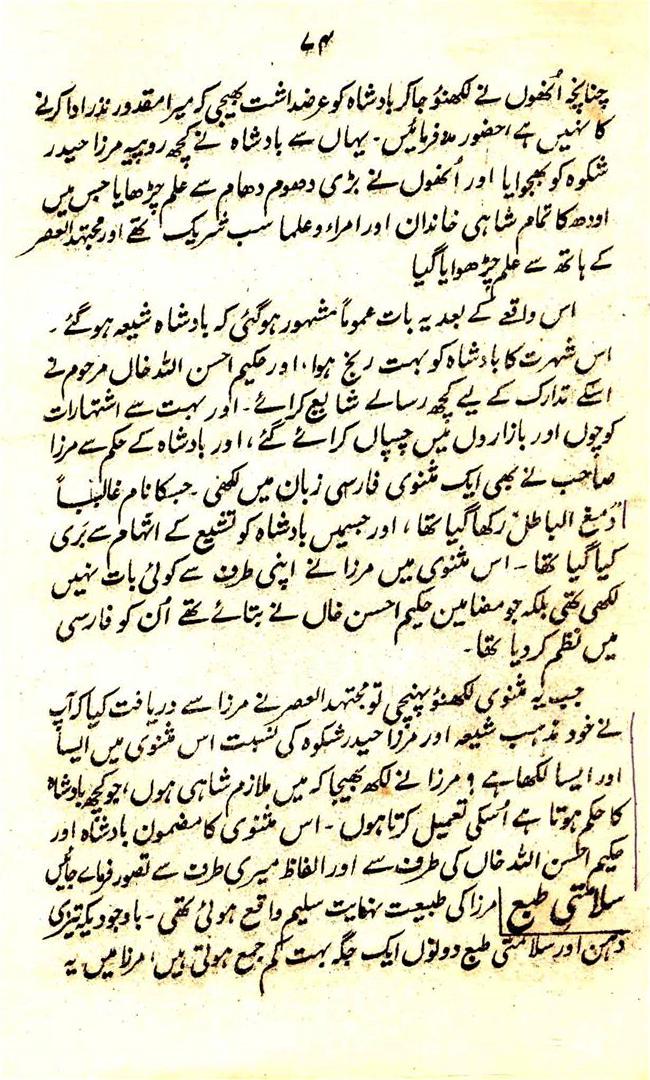 ۷۴
چنانچہ اُنھوں نے لکھنؤ جاکر بادشاہ کو عرضداشت بھیجی کہ میرا مقدور نذر ادا کرنے
کا نہیں ہے احضور مدد فرمائیں۔ یہاں سے بادشاہ نے کچھ روپیہ مرزا حیدر
شکوہ کو بھجوایا اور اُنھوں نے بڑی دھوم دھام سے علم چڑھایا جس میں
اودھ کا تمام شاہی خاندان اور امراء و علما سب شریک تھے اور مجتہد العصر
کے ہاتھ سے علم چڑھوایا گیا
اس واقعے کے بعد یہ بات عموماً مشہور ہوگئی کہ بادشاہ شیعہ ہوگئے۔
اس شہرت کا بادشاہ کو بہت رنج ہوا، اور حکیم احسن اللہ خاں مرحوم نے
اسکے تدارک کے لیے کچھ رسالے شایع کرائے۔ اور بہت سے اشتہارات
کوچوں اور بازاروں میں چسپاں کرائے گئے، اور بادشاہ کے حکم سے مرزا
صاحب نے بھی ایک مثنوی فارسی زبان میں لکھی۔ جسکا نام غالباً
دمغ الباطل رکھا گیا تھا، اور جسمیں بادشاہ کو تشیع کے اتہام سے بَری
کیا گیا تھا۔ اس مثنوی میں مرزا نے اپنی طرف سے کوئی بات نہیں
لکھی تھی بلکہ جو مضامین حکیم احسن خاں نے بتائے تھے اُن کو فارسی
میں نظم کردیا تھا۔
جب یہ مثنوی لکھنؤ پہنچی تو مجتہد العصر نے مرزا سے دریافت کیا کہ آپ
نے خود مذہب شیعہ اور مرزا حیدر شکوہ کی نسبت اس مثنوی میں ایسا
اور ایسا لکھا ہے؟ مرزا نے لکھ بھیجا کہ میں ملازم شاہی ہوں، جو کچھ بادشاہ
کا حکم ہوتا ہے اُسکی تعمیل کرتا ہوں۔ اس مثنوی کا مضمون بادشاہ اور
حکیم احسن اللہ خاں کی طرف سے اور الفاظ میری طرف سے تصور فرمائے جائیں
سلامتیِ طبع مرزا کی طبیعت نہایت سلیم واقع ہوئی تھی۔ باوجودیکہ تیزی
ذہن اور سلامتی طبع دونوں ایک جگہ بہت کم جمع ہوتی ہیں، مرزا میں یہ